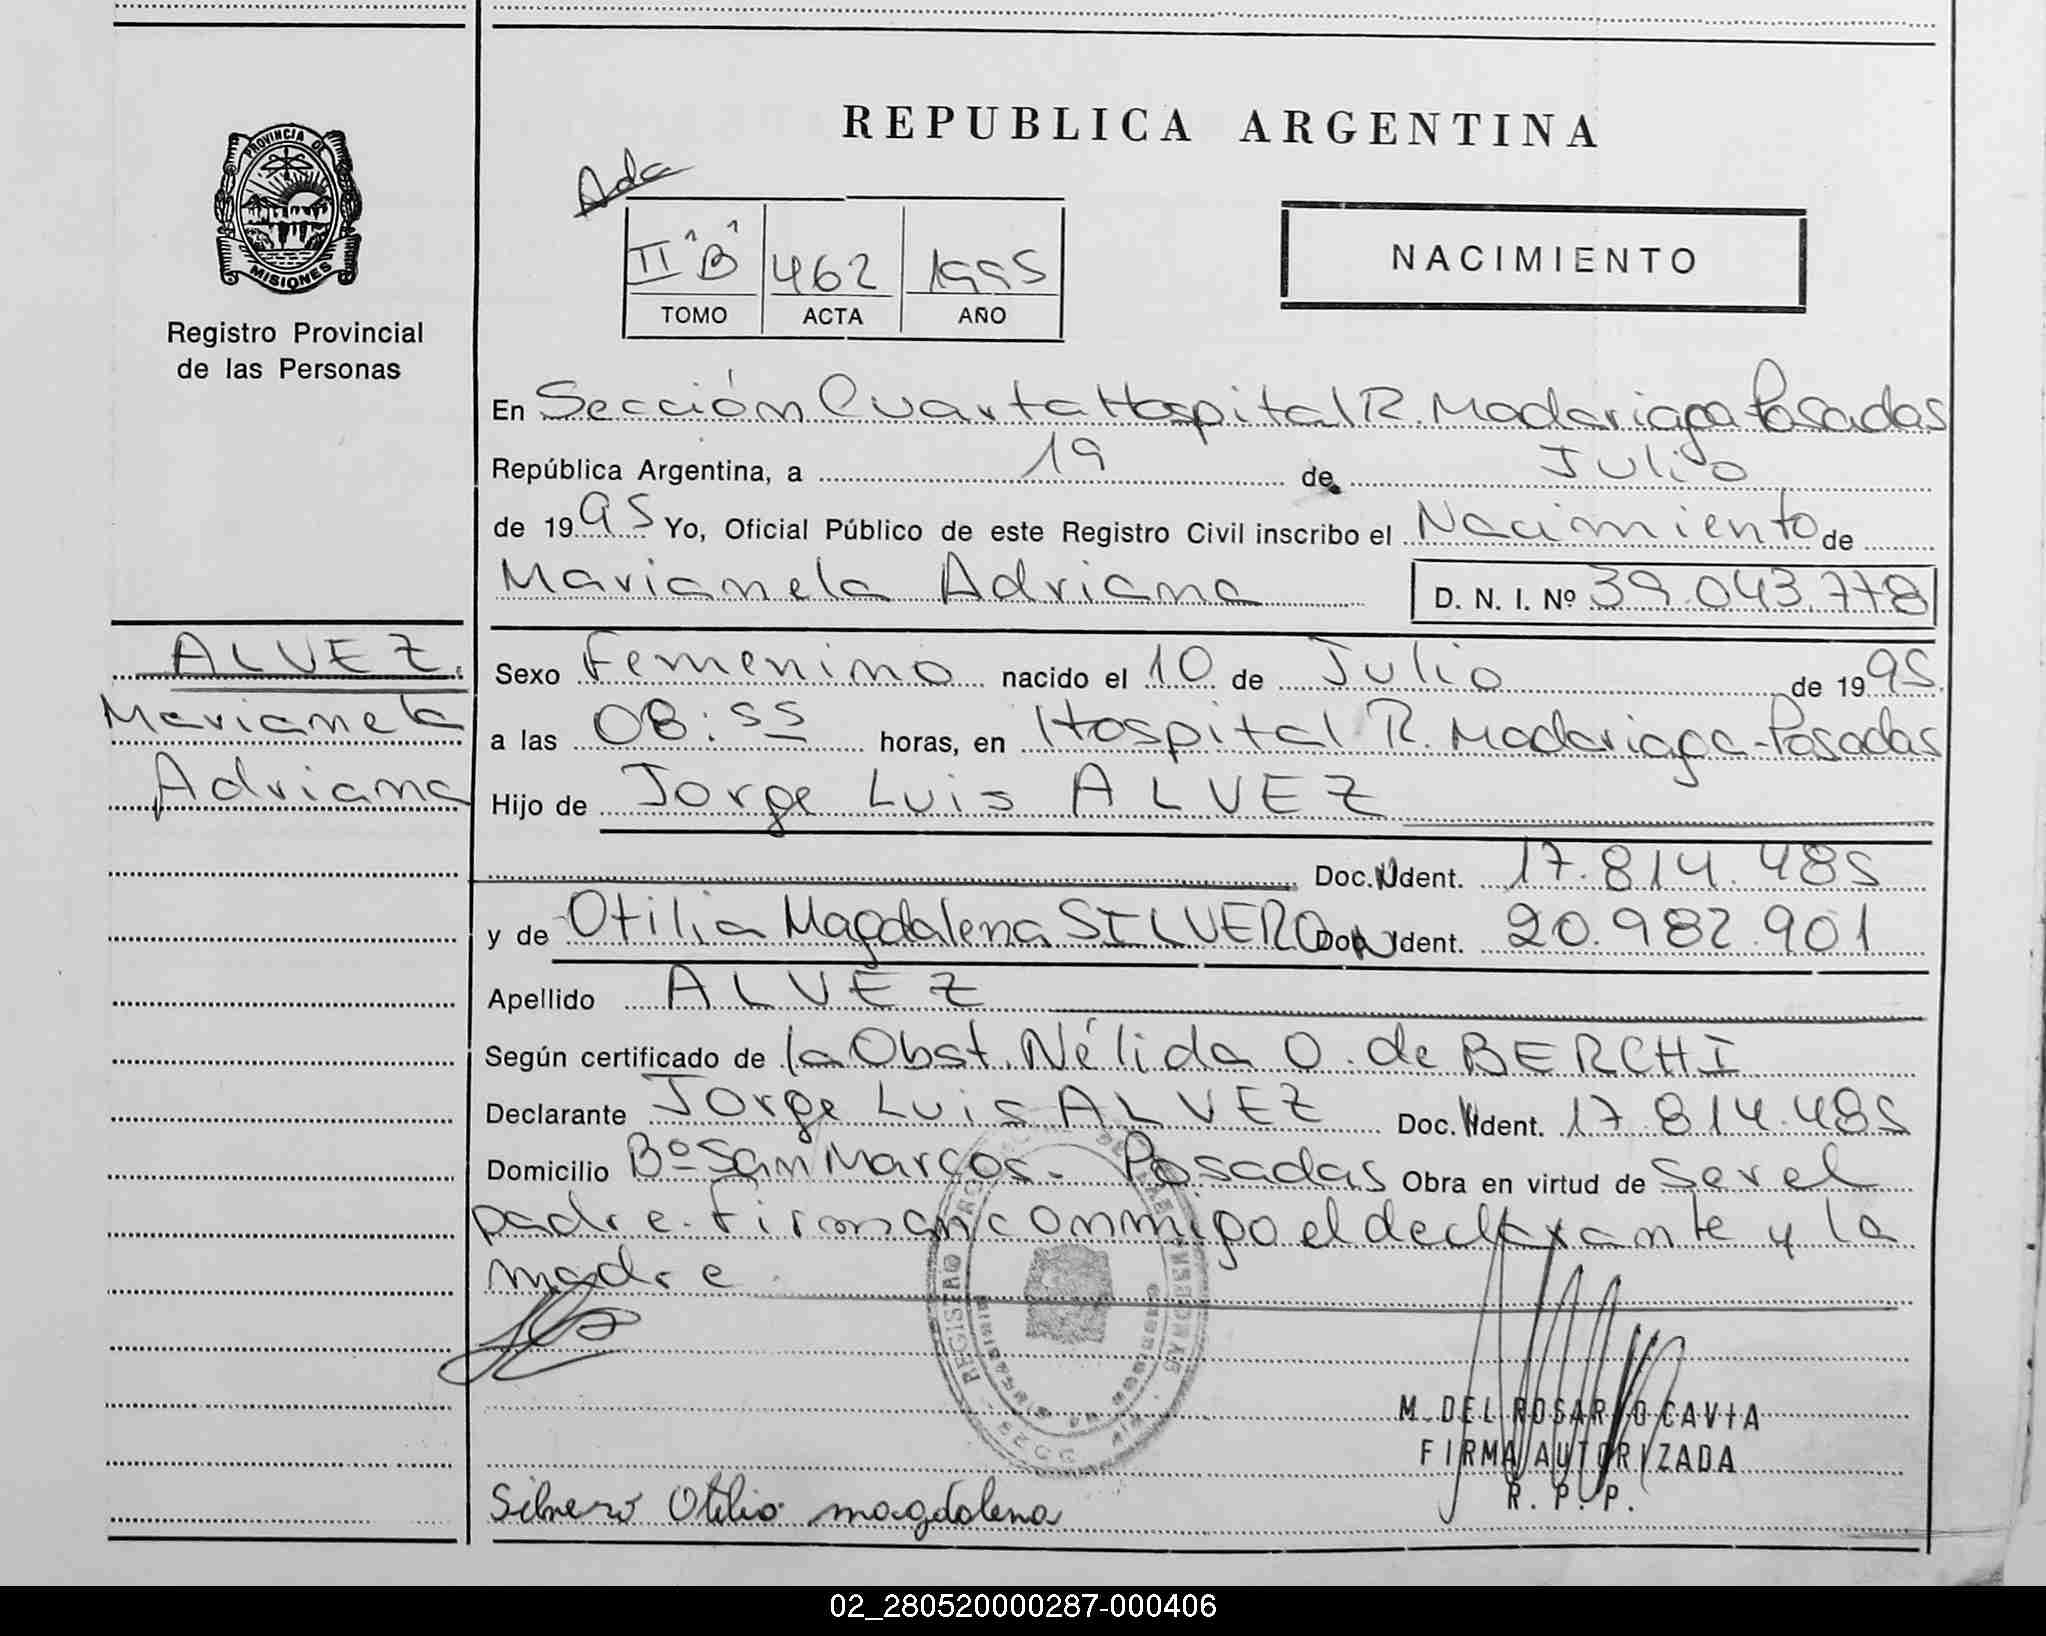 REPUBLICA ARGENTINA
Ada
II "B" 462 1995
TOMO ACTA AÑO
NACIMIENTO
PROVINCIA DE
MISIONES
Registro Provincial
de las Personas
En Sección Cuarta Hospital R. Madariaga Posadas
República Argentina, a 19 de Julio
de 1995 Yo, Oficial Público de este Registro Civil inscribo el Nacimiento de
Marianela Adriana D. N. I. Nº 39.043.778
ALVEZ.
Marianela
Adriana
Sexo Femenino nacido el 10 de Julio de 1995.
a las 08:55 horas, en Hospital R. Madariaga-Posadas
Hijo de Jorge Luis ALVEZ
Doc. Ident. 17.814.485
y de Otilia Magdalena SILVERO Doc. Ident. 20.982.901
Apellido ALVEZ
Según certificado de la Obst. Nélida O. de BERCHI
Declarante Jorge Luis ALVEZ Doc. Ident. 17.814.485
Domicilio Bº San Marcos - Posadas Obra en virtud de ser el
padre. Firman conmigo el declarante y la
madre.
M. DEL ROSARIO CAVIA
FIRMA AUTORIZADA
R. P. P.
Silvero Otilia magdalena
02_280520000287-000406